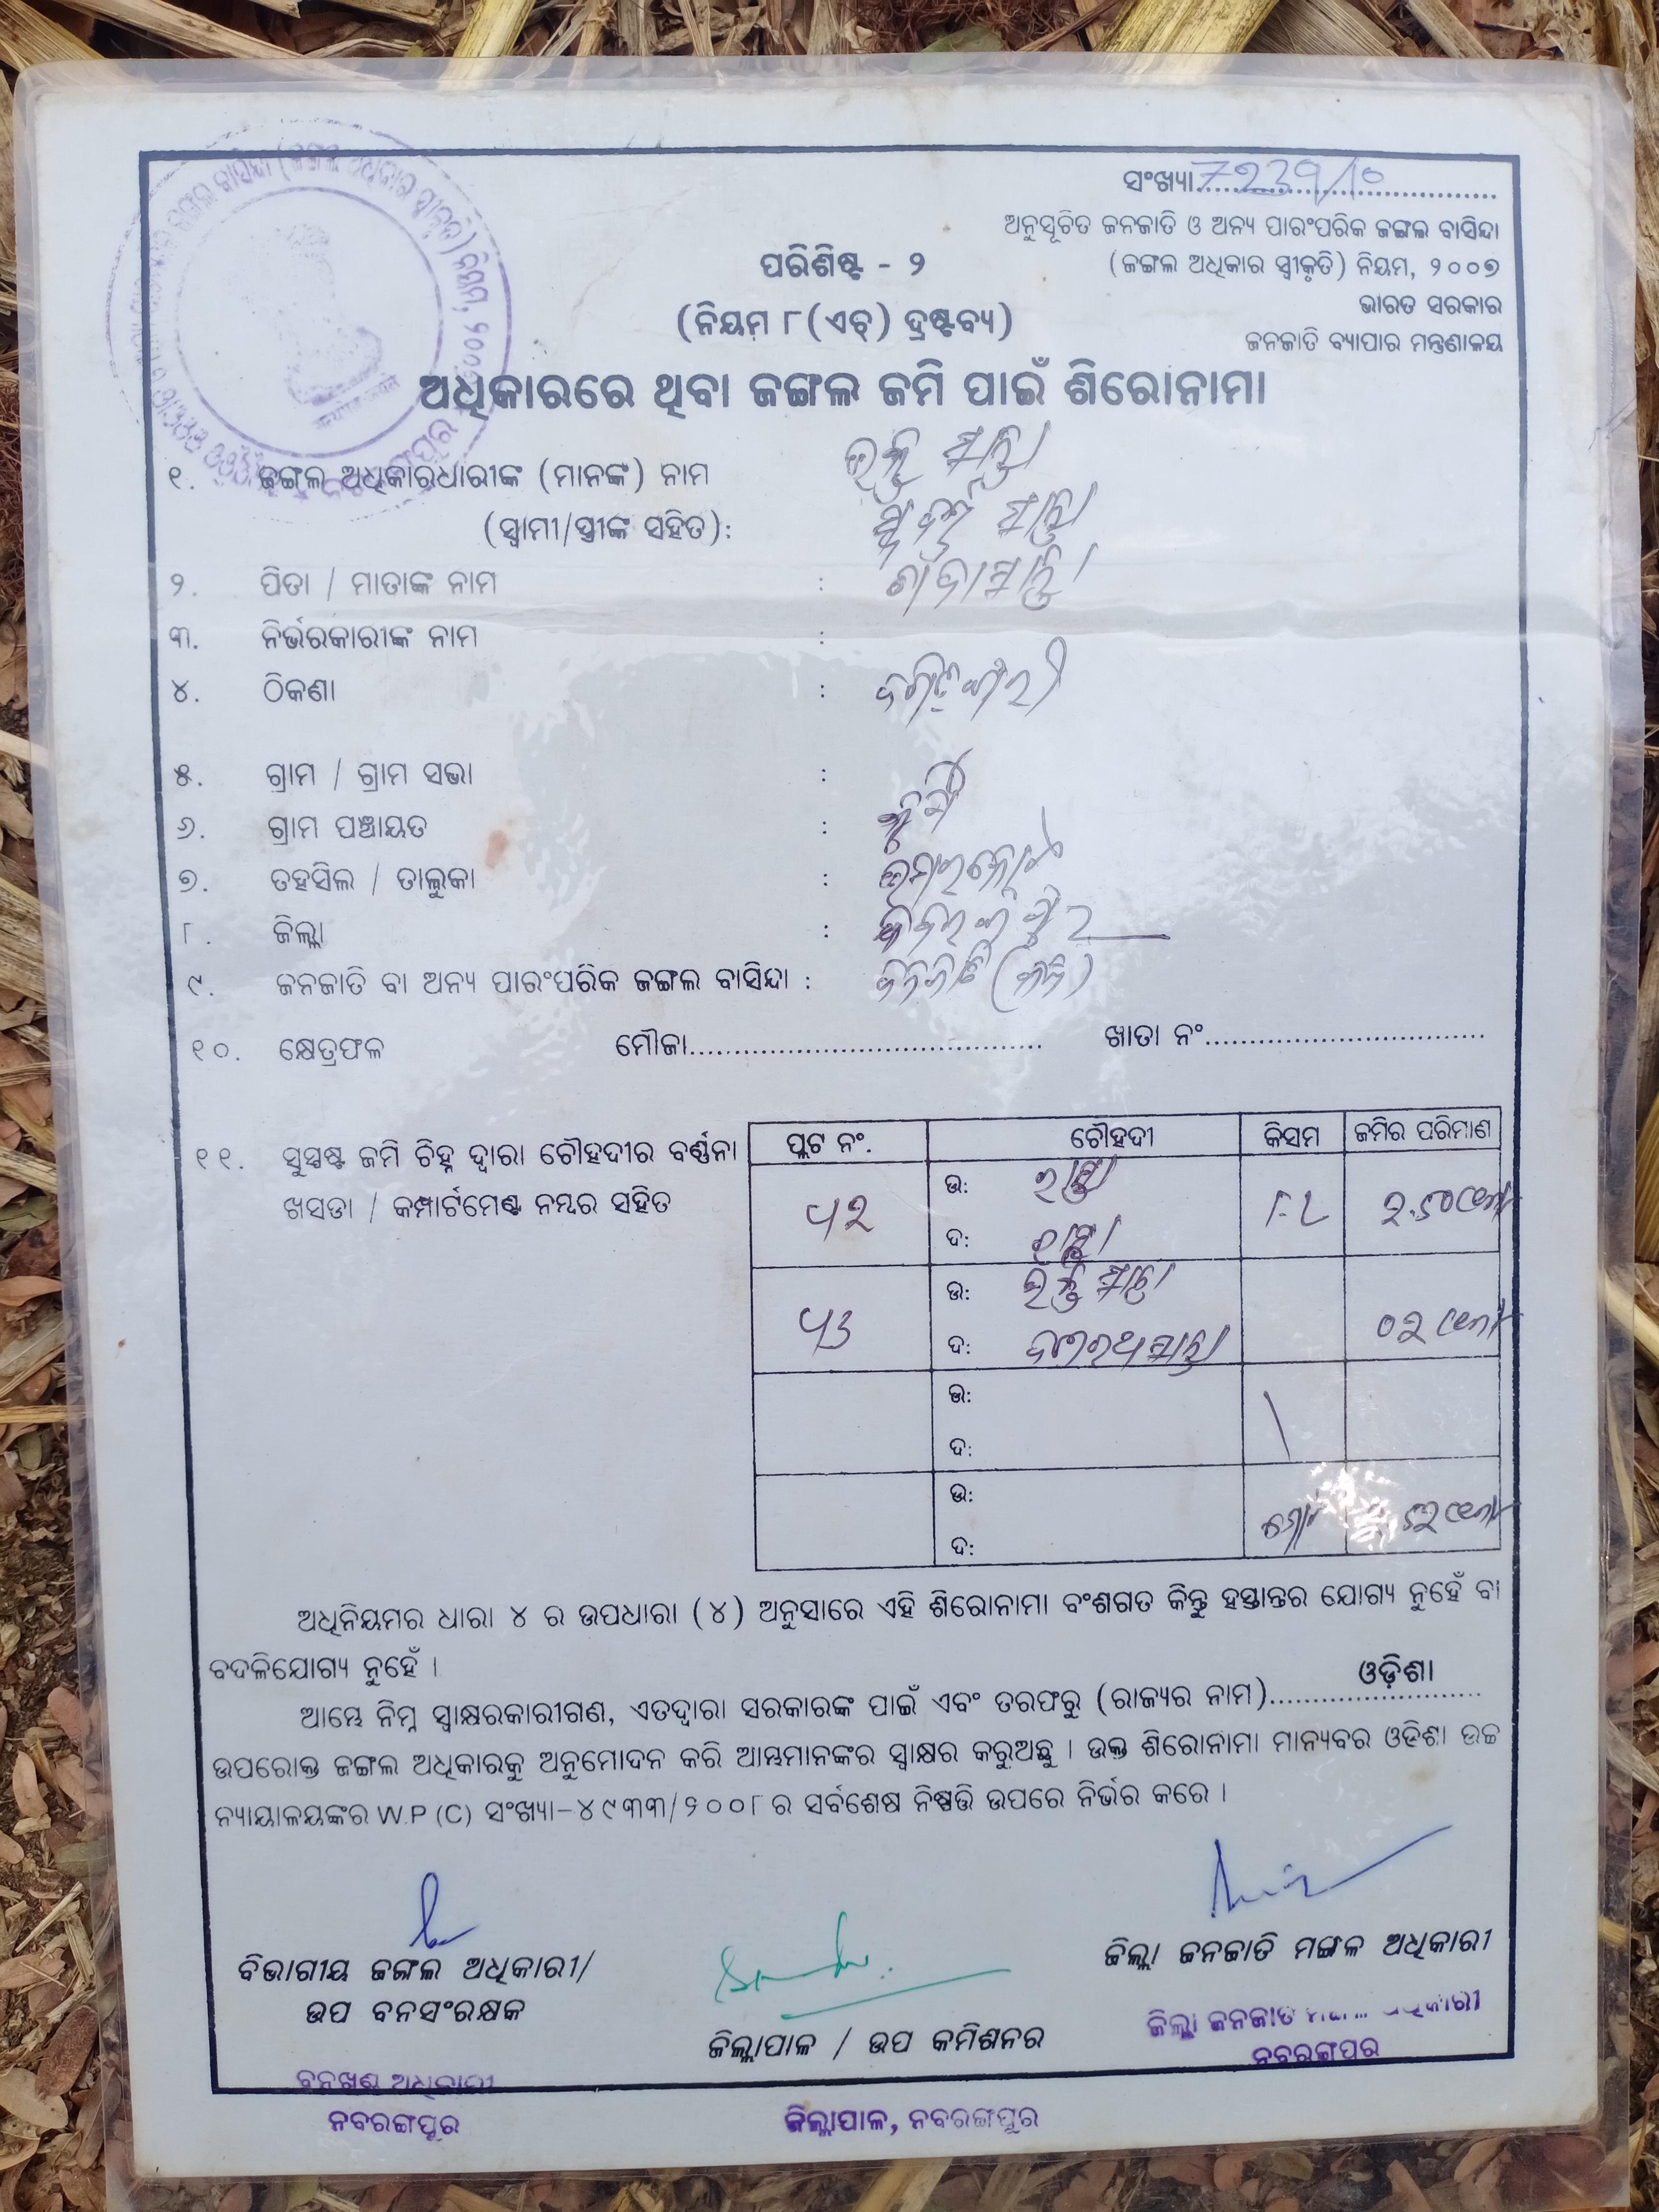 ସଂଖ୍ୟା 7239/10
ଅନୁସୂଚିତ ଜନଜାତି ଓ ଅନ୍ୟ ପାରଂପରିକ ଜଙ୍ଗଲ ବାସିନ୍ଦା
(ଜଙ୍ଗଲ ଅଧିକାର ସ୍ୱୀକୃତି) ନିୟମ, ୨୦୦୭
ଭାରତ ସରକାର
ଜନଜାତି ବ୍ୟାପାର ମନ୍ତ୍ରଣାଳୟ
ପରିଶିଷ୍ଟ - ୨
(ନିୟମ ୮(ଏଚ୍) ଦ୍ରଷ୍ଟବ୍ୟ)
ଅଧିକାରରେ ଥିବା ଜଙ୍ଗଲ ଜମି ପାଇଁ ଶିରୋନାମା
୧. ଜଙ୍ଗଲ ଅଧିକାରଧାରୀଙ୍କ (ମାନଙ୍କ) ନାମ
(ସ୍ୱାମୀ/ସ୍ତ୍ରୀଙ୍କ ସହିତ):
୨. ପିତା / ମାତାଙ୍କ ନାମ :
୩. ନିର୍ଭରକାରୀଙ୍କ ନାମ :
୪. ଠିକଣା :
୫. ଗ୍ରାମ / ଗ୍ରାମ ସଭା :
୬. ଗ୍ରାମ ପଞ୍ଚାୟତ :
୭. ତହସିଲ / ତାଲୁକା : ଉମରକୋଟ
୮. ଜିଲ୍ଲା : ନବରଙ୍ଗପୁର
୯. ଜନଜାତି ବା ଅନ୍ୟ ପାରଂପରିକ ଜଙ୍ଗଲ ବାସିନ୍ଦା : ଜନଜାତି
୧୦. କ୍ଷେତ୍ରଫଳ ମୌଜା ଖାତା ନଂ
୧୧. ସୁସ୍ପଷ୍ଟ ଜମି ଚିହ୍ନ ଦ୍ୱାରା ଚୌହଦୀର ବର୍ଣ୍ଣନା
ଖସଡା / କମ୍ପାର୍ଟମେଣ୍ଟ ନମ୍ବର ସହିତ
ପ୍ଲଟ ନଂ. ଚୌହଦୀ କିସମ ଜମିର ପରିମାଣ
ଉ: ରାସ୍ତା
ଦ: ରାସ୍ତା
ଉ:
ଦ:
ଉ:
ଦ:
ଉ:
ଦ:
ଅଧିନିୟମର ଧାରା ୪ ର ଉପଧାରା (୪) ଅନୁସାରେ ଏହି ଶିରୋନାମା ବଂଶଗତ କିନ୍ତୁ ହସ୍ତାନ୍ତର ଯୋଗ୍ୟ ନୁହେଁ ବା
ବଦଳିଯୋଗ୍ୟ ନୁହେଁ ।
ଆମ୍ଭେ ନିମ୍ନ ସ୍ୱାକ୍ଷରକାରୀଗଣ, ଏତଦ୍ୱାରା ସରକାରଙ୍କ ପାଇଁ ଏବଂ ତରଫରୁ (ରାଜ୍ୟର ନାମ) ଓଡ଼ିଶା
ଉପରୋକ୍ତ ଜଙ୍ଗଲ ଅଧିକାରକୁ ଅନୁମୋଦନ କରି ଆମ୍ଭମାନଙ୍କର ସ୍ୱାକ୍ଷର କରୁଅଛୁ । ଉକ୍ତ ଶିରୋନାମା ମାନ୍ୟବର ଓଡିଶା ଉଚ୍ଚ
ନ୍ୟାୟାଳୟଙ୍କର W.P (C) ସଂଖ୍ୟା-୪୯୩୩/୨୦୦୮ ର ସର୍ବଶେଷ ନିଷ୍ପତ୍ତି ଉପରେ ନିର୍ଭର କରେ ।
ବିଭାଗୀୟ ଜଙ୍ଗଲ ଅଧିକାରୀ/
ଉପ ବନସଂରକ୍ଷକ
ଜିଲ୍ଲାପାଳ / ଉପ କମିଶନର
ଜିଲ୍ଲା ଜନଜାତି ମଙ୍ଗଳ ଅଧିକାରୀ
ବନଖଣ୍ଡ ଅଧିକାରୀ
ନବରଙ୍ଗପୁର
ଜିଲ୍ଲାପାଳ, ନବରଙ୍ଗପୁର
ଜିଲ୍ଲା ଜନଜାତି ମଙ୍ଗଳ ଅଧିକାରୀ
ନବରଙ୍ଗପୁର